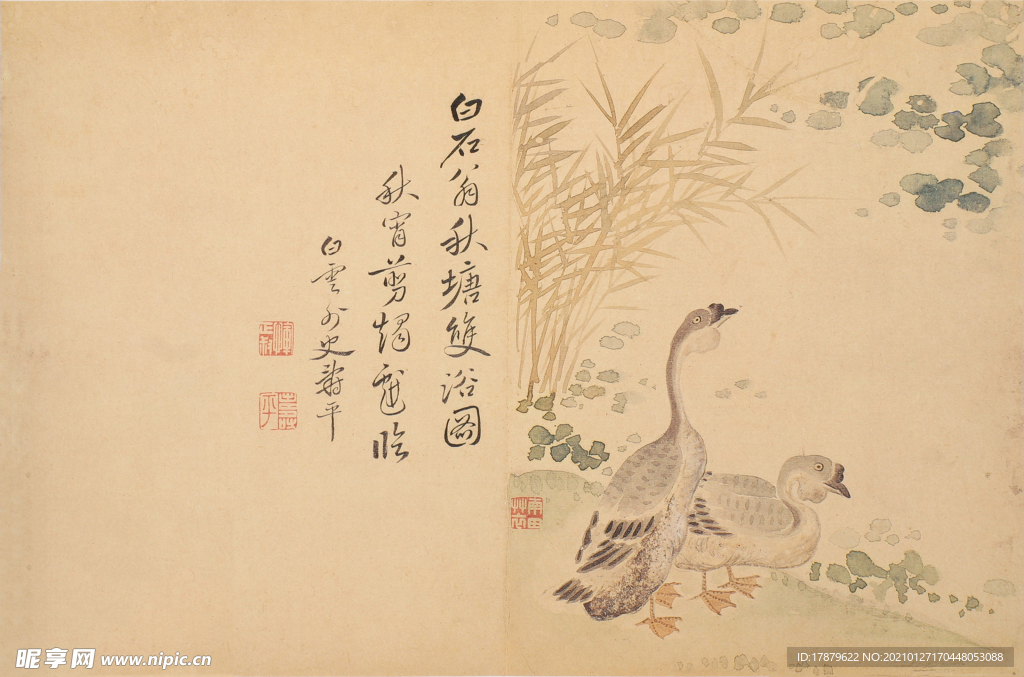 白石翁秋塘雙浴圖
秋宵剪燭戲臨
白雲外史壽平
壽平
南田
昵享网 www.nipic.cn
ID:17879622 NO:20210127170448053088